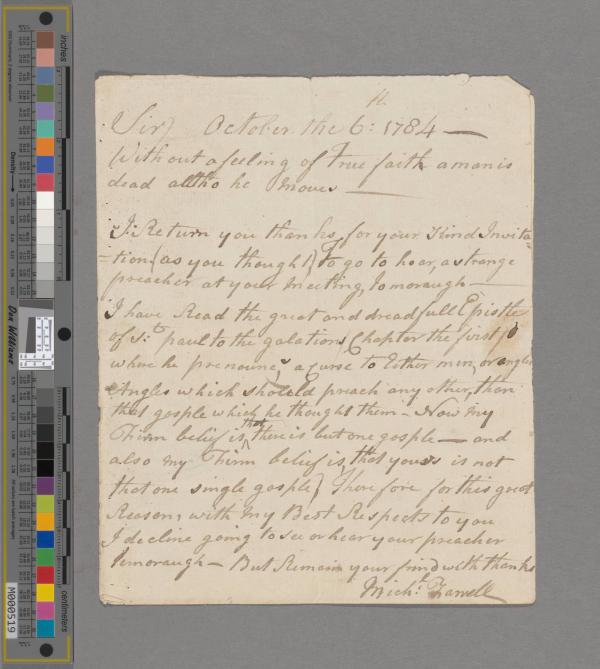 H.
Sir) October the 6: 1784 —
Without a feeling of true faith a man is
dead alltho he moves —
I: Return you thanks, for your Kind Invita=
=tion (as you thought) to go to hear, a strange
preacher at your meeting, tomoraugh —
I have Read the great and dreadfull Epistle
of St: paul to the galations Chapter the first
where he pronounes a Curse to Either men, or angles
Angles which should preach any other, than
that gosple which he thought them — Now my
Firm belief is, that there is but one gosple — and
also my Firm belief is, that yours is not
that one single gosple) Therefore for this great
Reason, with my Best Respects to you
I decline going to see or hear your preacher
tomoraugh — But Remain your frind with thanks
Micht. Farrell
inches
centimetres
Don Williams
Density
M000519